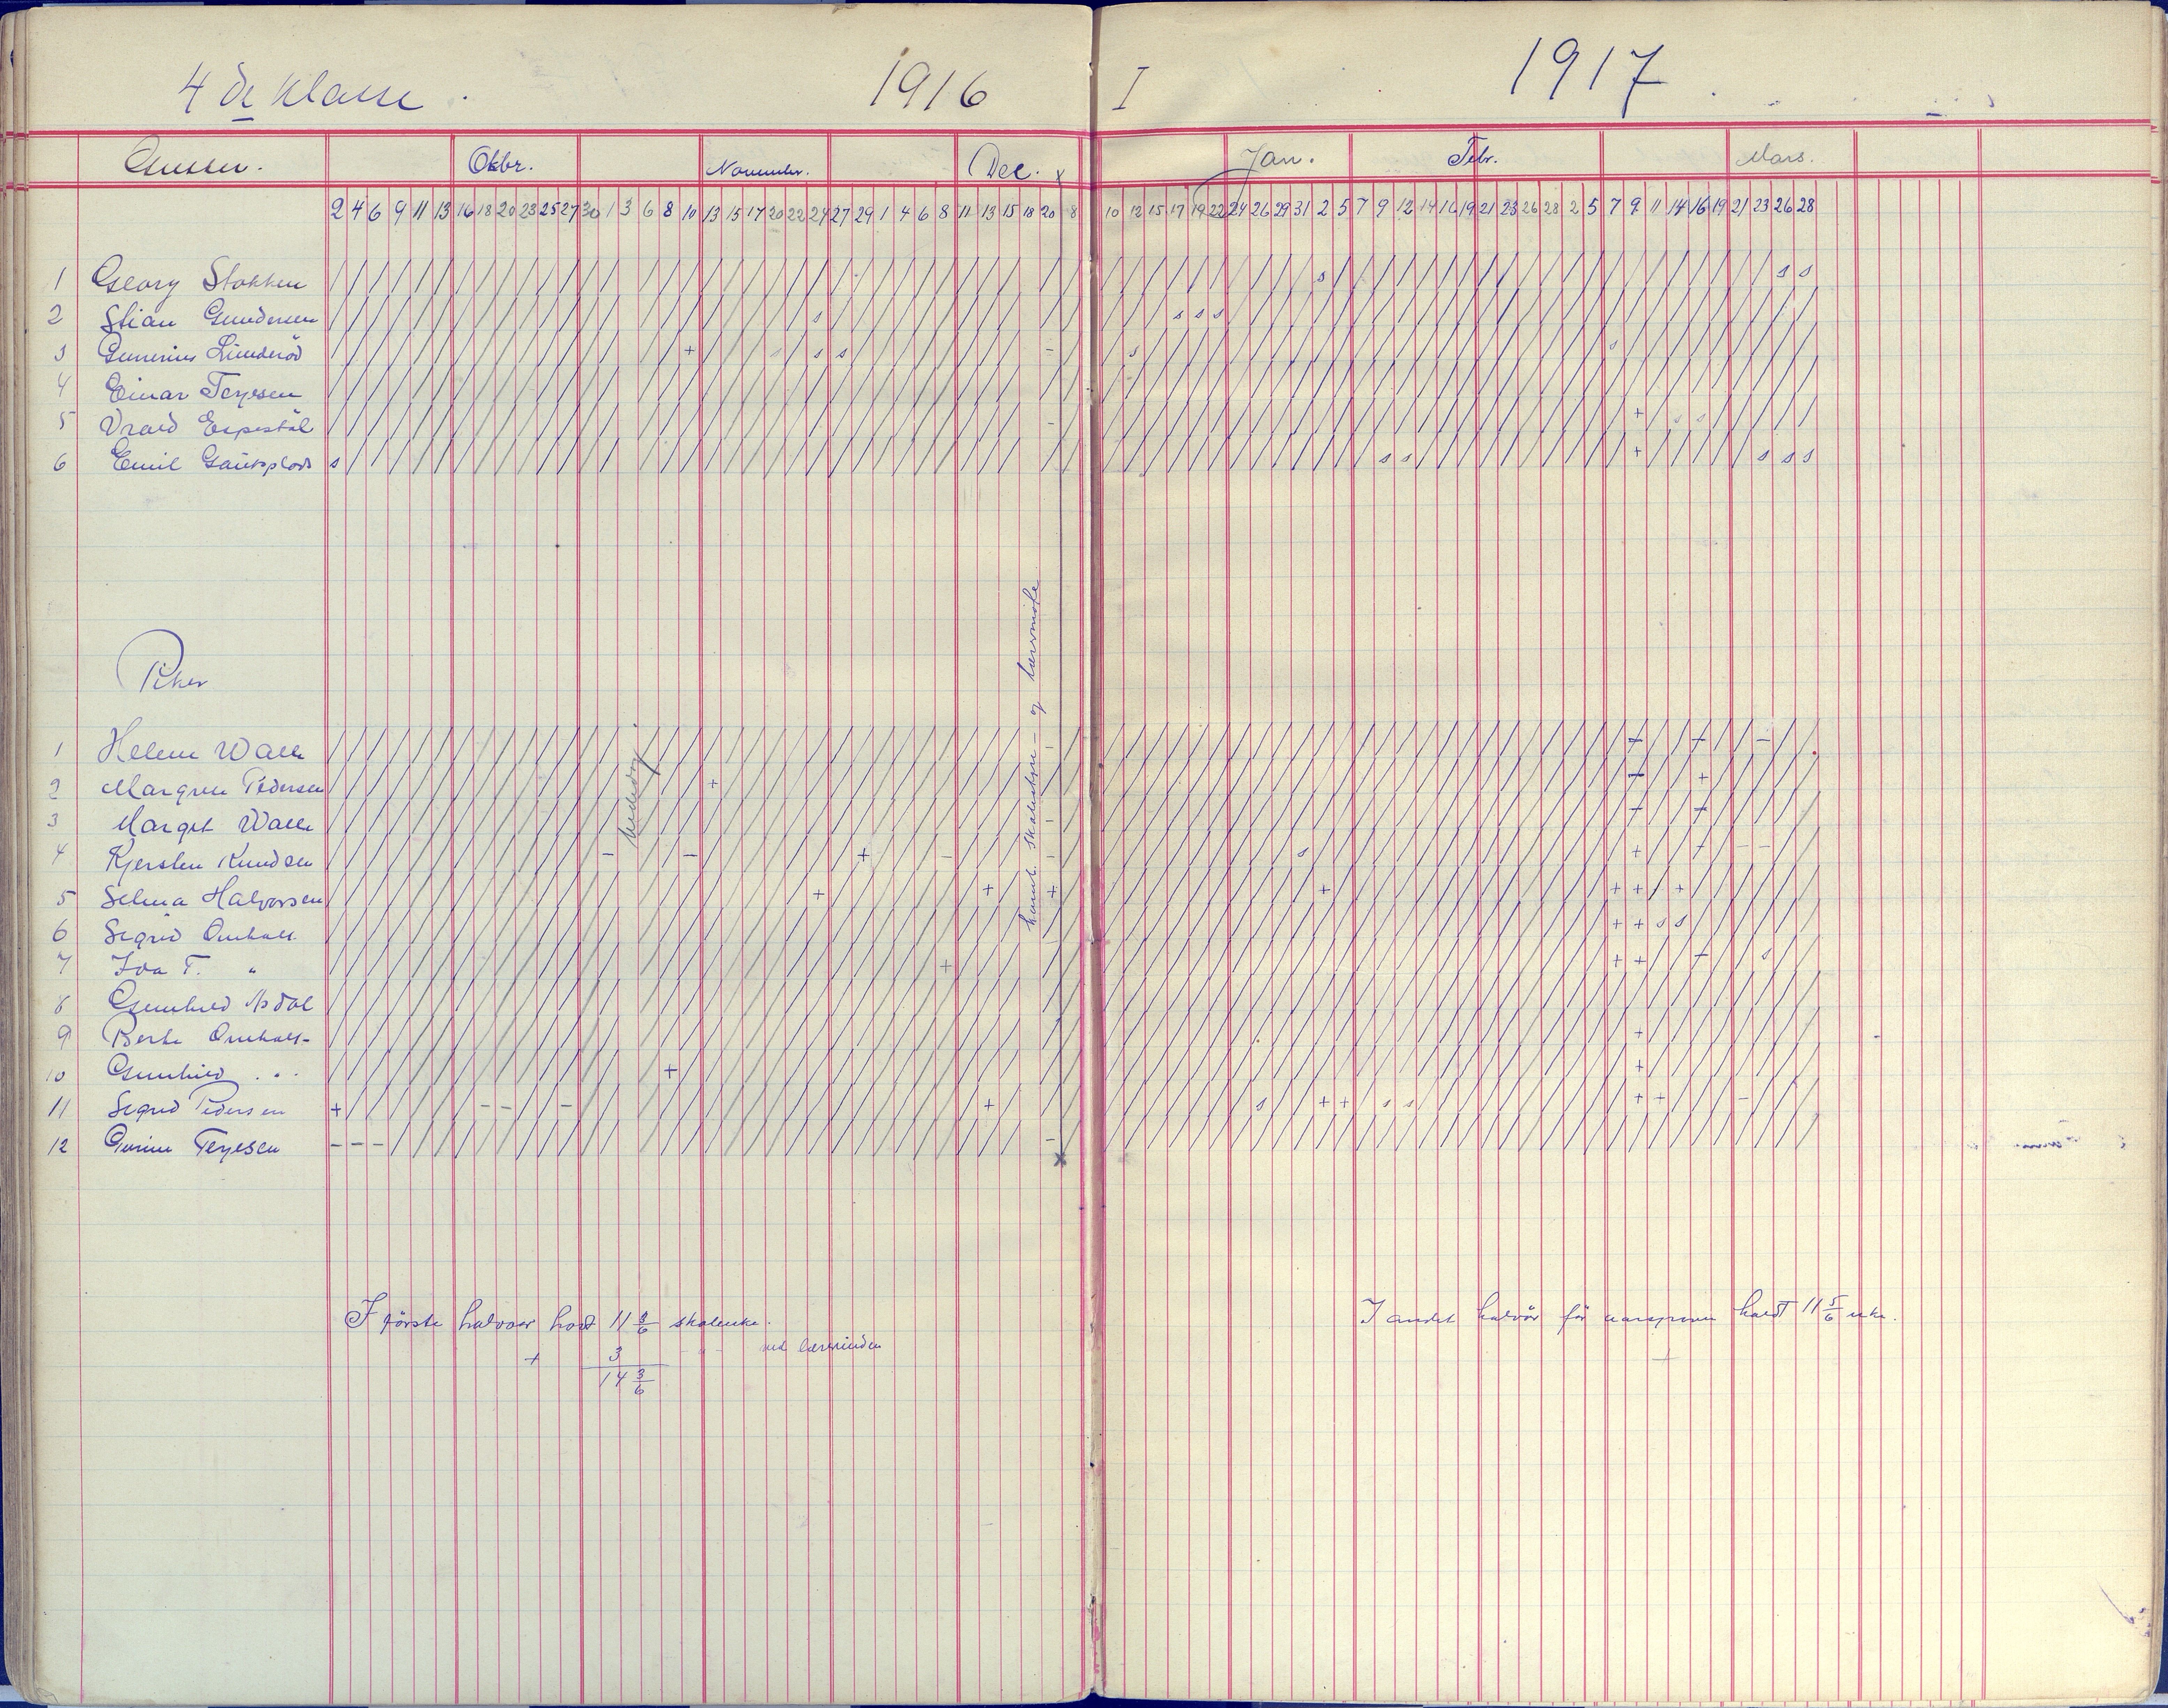 4de Klasse. 1916 I 1917
Gutter. Oktbr. November. Dec. x Jan. Febr. Mars.
2 4 6 9 11 13 16 18 20 23 25 27 30 1 3 6 8 10 13 15 17 20 22 24 27 29 1 4 6 8 11 13 15 18 20 8 10 12 15 17 19 22 24 26 29 31 2 5 7 9 12 14 16 19 21 23 26 28 2 5 7 9 11 14 16 19 21 23 26 28
1 Georg Stokken
2 Stian Gundersen
3 Gunerius Lunderöd
4 Einar Terjesen
5 Vrald Espestöl
6 Emil
Piker
1 Helene Walle
2 Margree Pedersen
3 Margit Walle
4 Kjersten Knudsen
5 Selma Halvorsen
6 Sigrid Omholt
7 Ida T. "
8 Gunhild
9 Berte Omholt
10 Gunhild "
11 Sigrid Pedersen
12 Gurine Terjesen
komb. skolestyre- og lærermöte
I förste halvaar hold 11 3/6 skoleuke.
+ 3 - " - ved lærerinden
14 3/6
I andet halvår för aarsprøven holdt 11 5/6 uke.
+